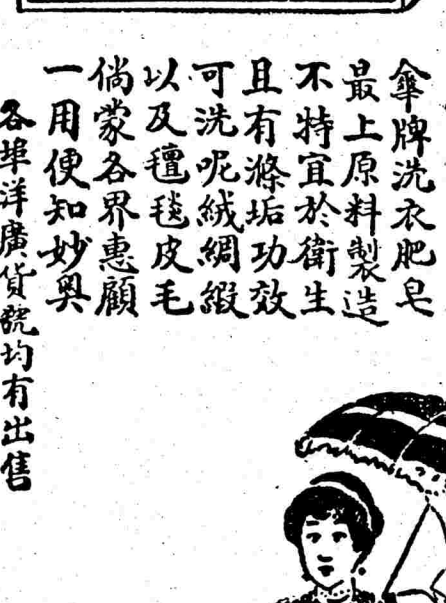 傘牌洗衣肥皂
最上原料製造
不特宜於衛生
且有滌垢功效
可洗呢絨綢緞
以及氊毯皮毛
倘蒙各界惠顧
一用便知妙奥
各埠洋廣貨號均有出售